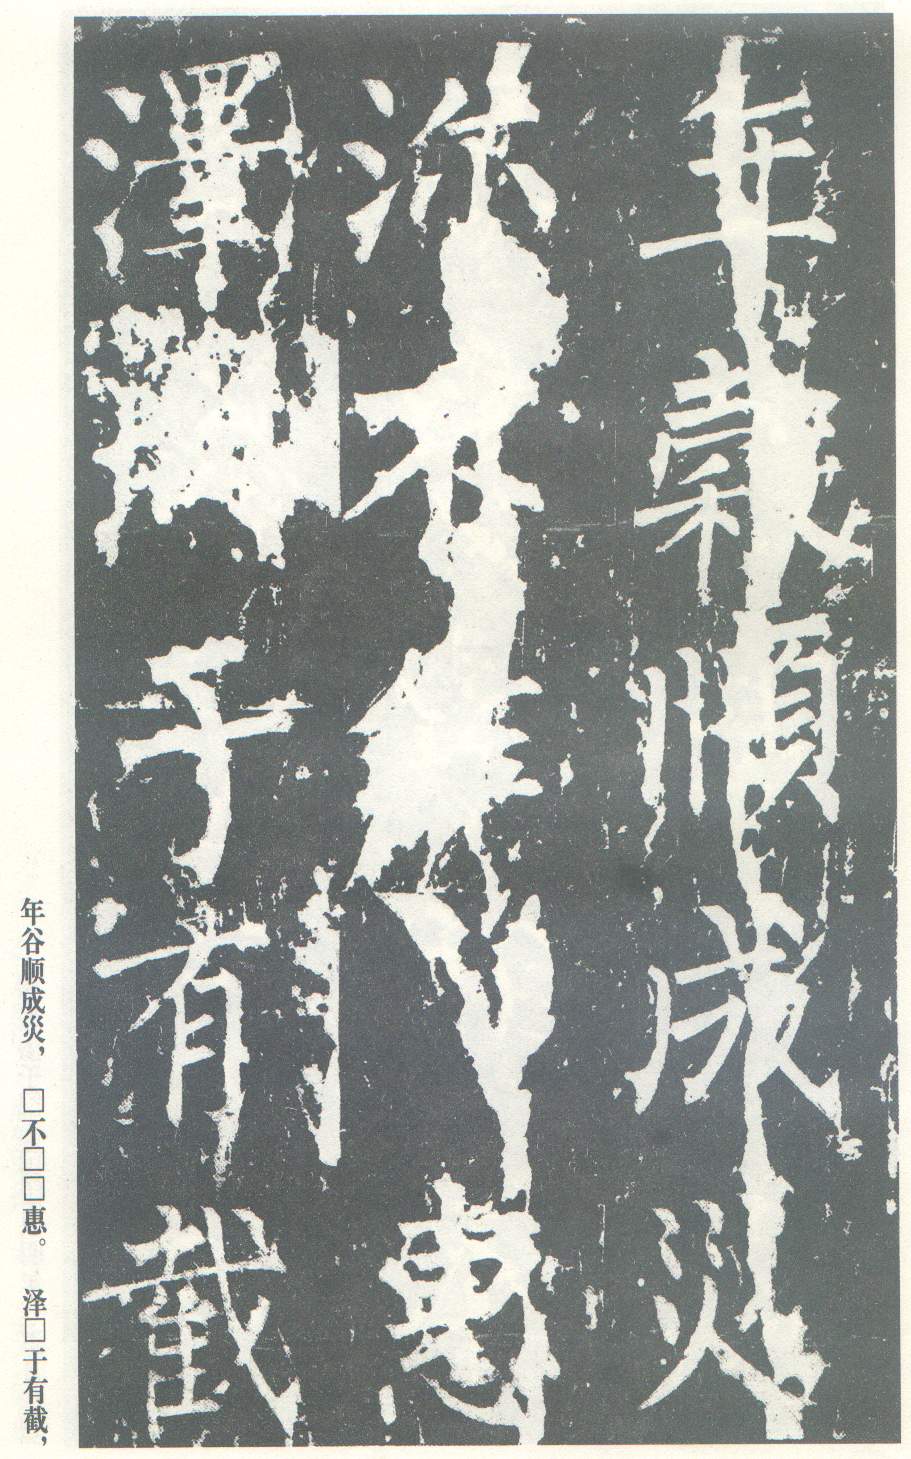 年穀順成災
不惠
澤于有截
年谷顺成災，□不□□惠。泽□于有截，